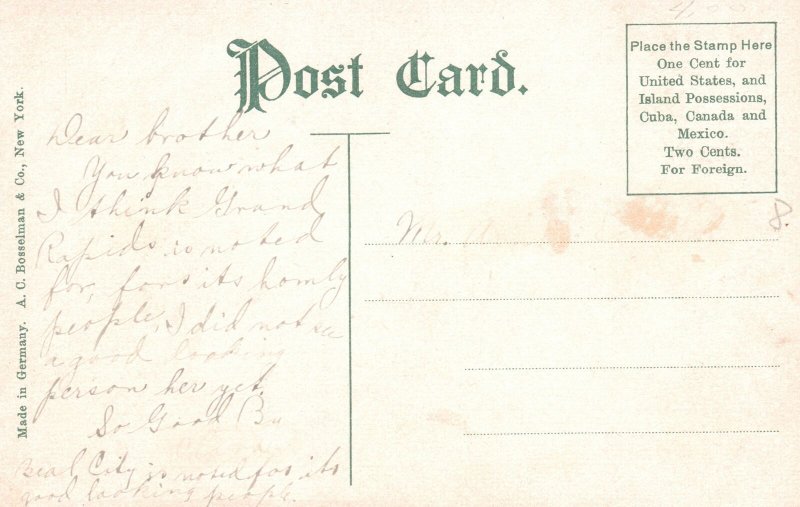 4.00
Post Card.
Place the Stamp Here
One Cent for
United States, and
Island Possessions,
Cuba, Canada and
Mexico.
Two Cents.
For Foreign.
Made in Germany. A. C. Bosselman & Co., New York.
8.
Mr.
Dear brother
You know what
I think Grand
Rapids is noted
for, for its homly
people, I did not see
a good looking
person her yet.
So Good By
Beal City is noted for its
good looking people.